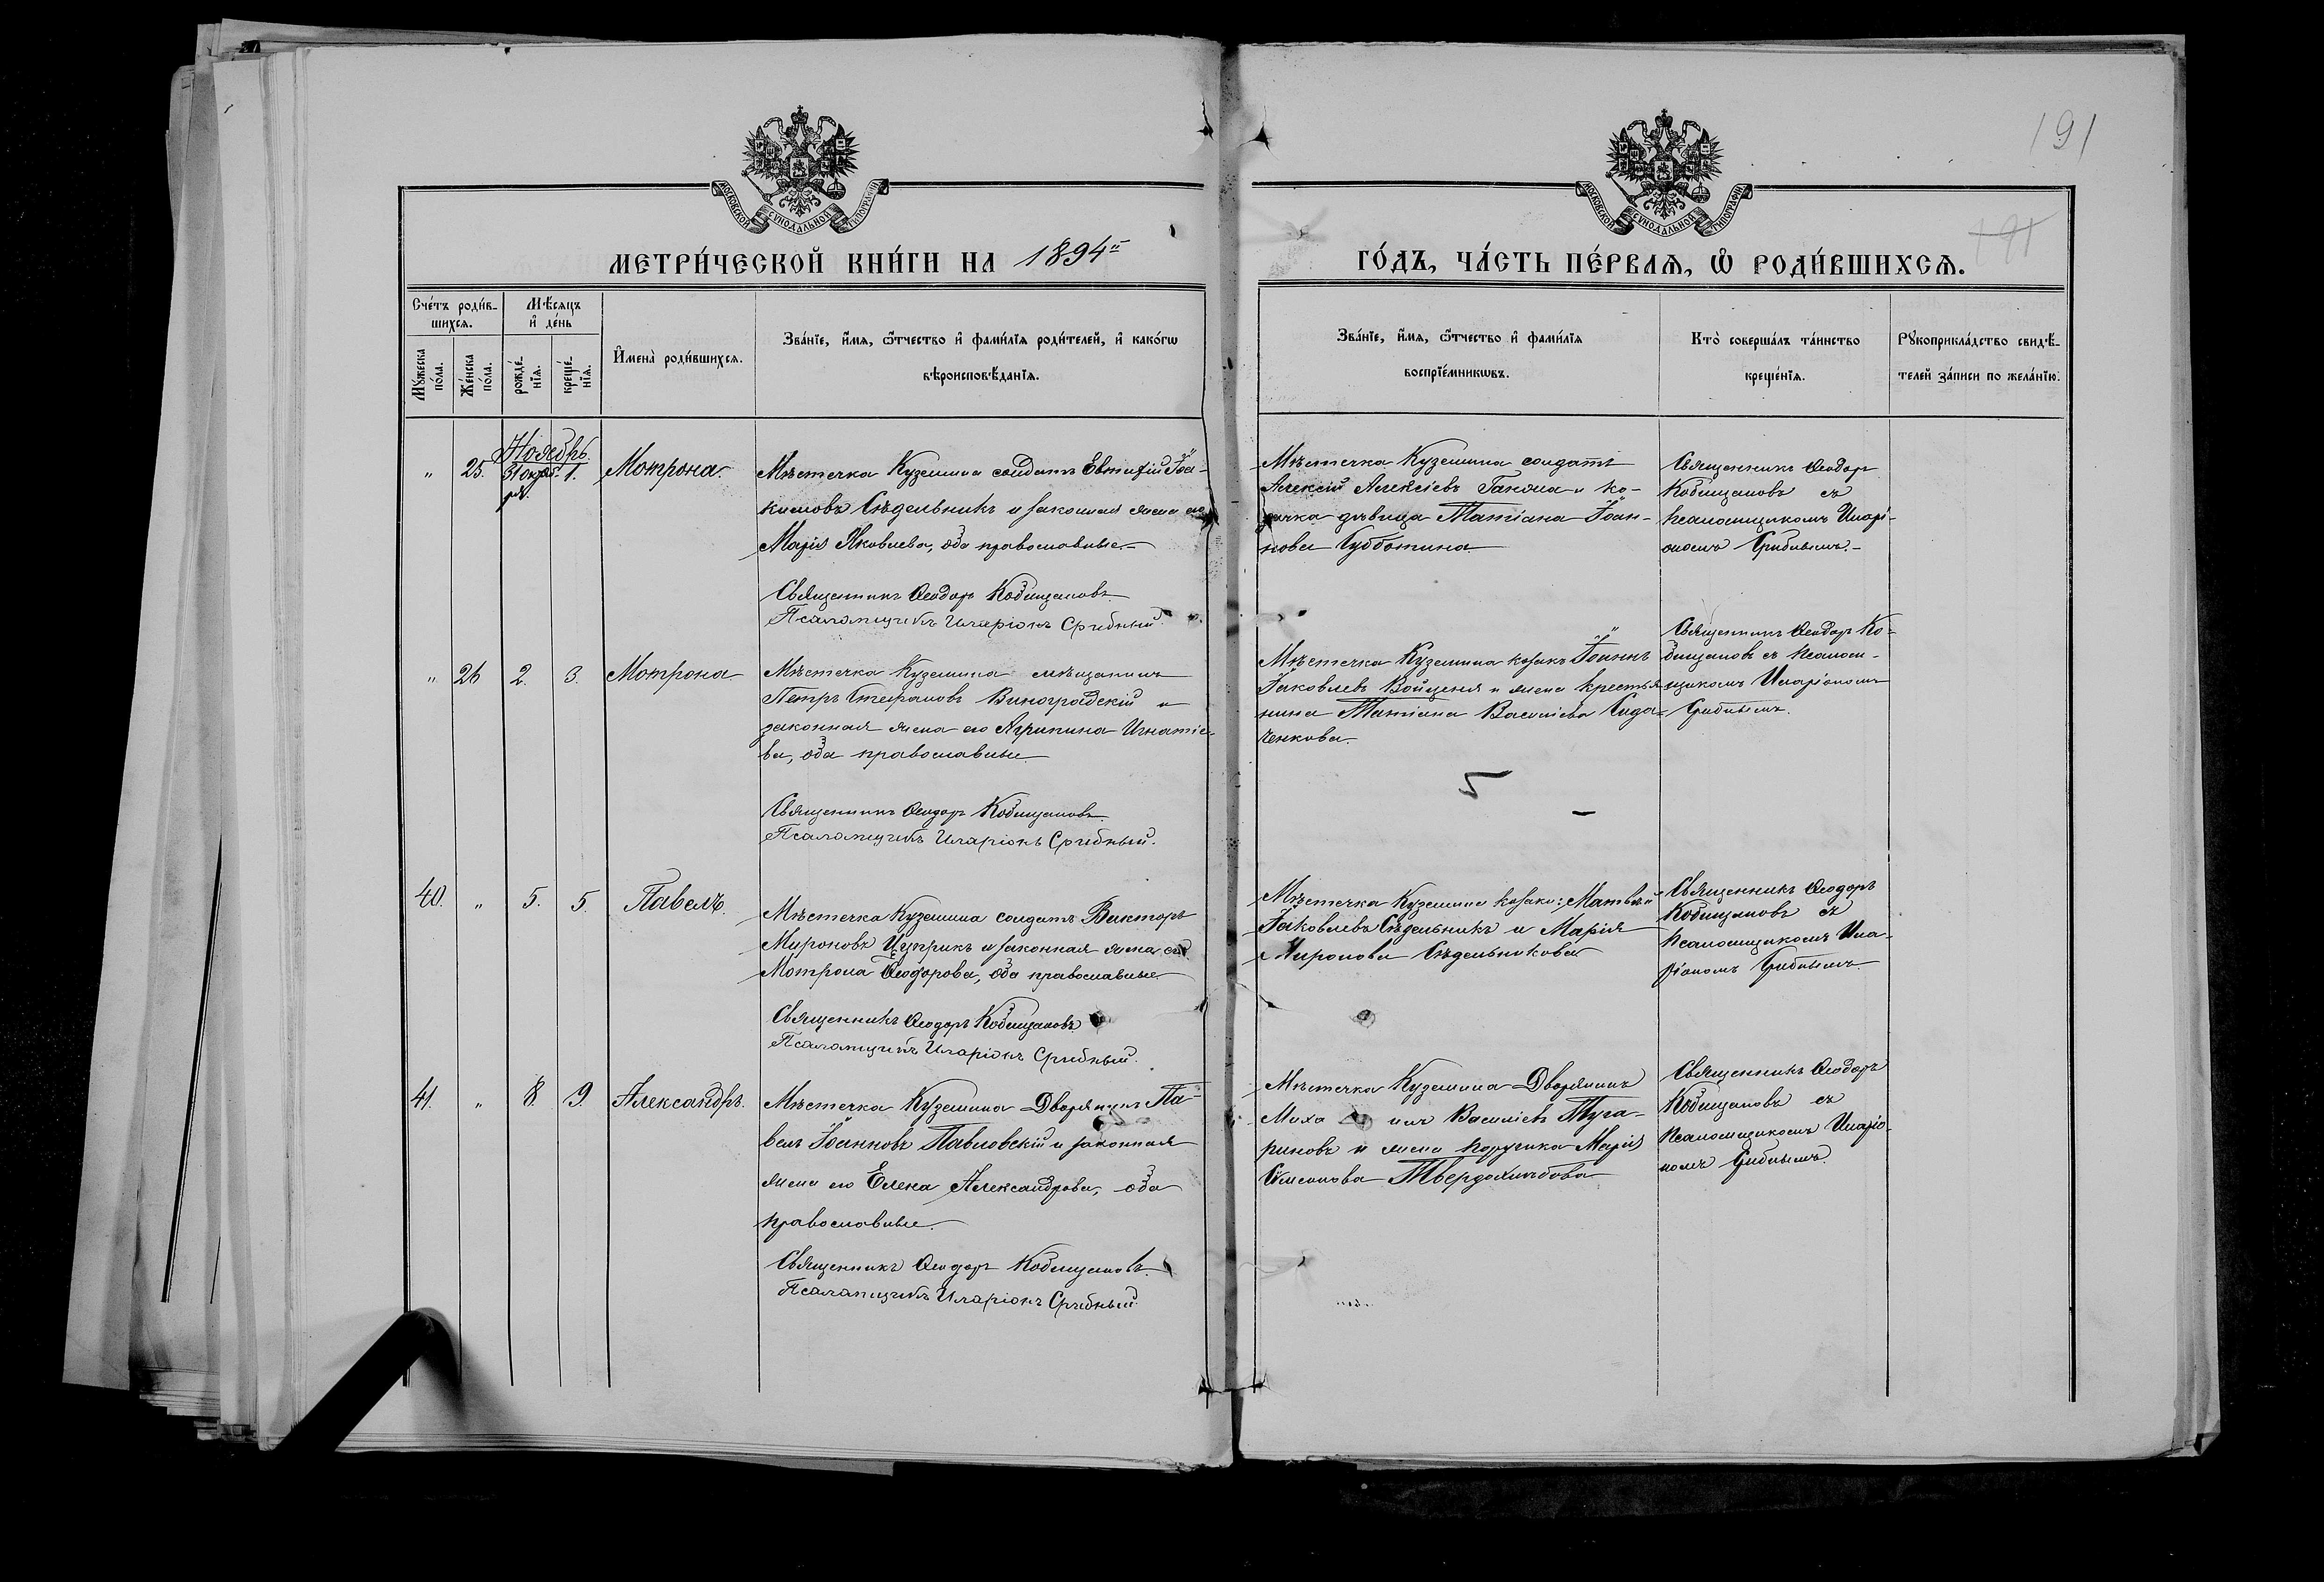 191
МОСКОВСКОЙ СѴНОДАЛЬНОЙ ТИПОГРАФІИ
МОСКОВСКОЙ СѴНОДАЛЬНОЙ ТИПОГРАФІИ
191
МЕТРИ́ЧЕСКОЙ КНИ́ГИ НА 1894й
ГО́ДЪ, ЧА́СТЬ ПЕ́РВАѦ, Ѽ РОДИ́ВШИХСѦ.
Сче́тъ роди́в-
шихсѧ.
Мѣ́сѧцъ
и҆ де́нь
Мꙋ́жеска по́ла.
Же́нска по́ла.
рожде́-нїѧ.
креще́-нїѧ.
И҆мена̀ роди́вшихсѧ.
Зва́нїе, и҆́мѧ, ѻ҆́тчество и҆ фами́лїѧ роди́телей, и҆ како́гѡ
вѣроисповѣ́данїѧ.
Зва́нїе, и҆́мѧ, ѻ҆́тчество и҆ фами́лїѧ
воспрїе́мникѡвъ.
Кто̀ соверша́лъ та́инство
креще́нїѧ.
Рꙋкоприкла́дство свидѣ́-
телей за́писи по жела́нїю.
Ноябрь.
„ 25. 31 октяб- 1. Мотрона.
ря.
Мѣстечка Куземина солдатъ Евтифій Іоа-
кимовъ Сѣдельникъ и законная жена его
Марія Яковлева, оба православные.
Священникъ Ѳеодоръ Кобищановъ.
Псаломщикъ Иларіонъ Срибный.
Мѣстечка Куземина солдатъ
Алексій Алексіевъ Ганжа и ко-
зачка дѣвица Татіана Іоан-
нова Субботина
Священникъ Ѳеодоръ
Кобищановъ съ
псаломщикомъ Иларі-
ономъ Срибнымъ.
„ 26 2. 3. Мотрона
Мѣстечка Куземина мѣщанинъ
Петръ Стефановъ Виноградскій и
законная жена его Агрипина Игнатіе-
ва, оба православные.
Священникъ Ѳеодоръ Кобищановъ.
Псаломщикъ Иларіонъ Срибный.
Мѣстечка Куземина козакъ Іоаннъ
Іаковлевъ Войценя и жена крестья-
нина Татіана Василіева Сида-
ченкова.
Священникъ Ѳеодоръ Ко-
бищановъ съ псалом-
щикомъ Иларіономъ
Срибнымъ.
5
40. „ 5. 5. Павелъ.
Мѣстечка Куземина солдатъ Викторъ
Мироновъ Цуприкъ и законная жена его
Мотрона Ѳеодорова, оба православные
Священникъ Ѳеодоръ Кобищановъ
Псаломщикъ Иларіонъ Срибный.
Мѣстечка Куземина козаки: Матвѣй
Іаковлевъ Сѣдельникъ и Марія
Миронова Сѣдельникова
Священникъ Ѳеодоръ
Кобищановъ съ
псаломщикомъ Ила-
ріономъ Срибнымъ.
41. „ 8. 9. Александръ.
Мѣстечка Куземина Дворянинъ Па-
велъ Іоанновъ Павловскій и законная
жена его Елена Александрова, оба
православные.
Священникъ Ѳеодоръ Кобищановъ.
Псаломщикъ Иларіонъ Срибный.
Мѣстечка Куземина Дворянинъ
Миха илъ Василіевъ Туга-
риновъ и жена поручика Марія
Симонова Твердохлѣбова
Священникъ Ѳеодоръ
Кобищановъ съ
псаломщикомъ Иларіо-
номъ Срибнымъ.